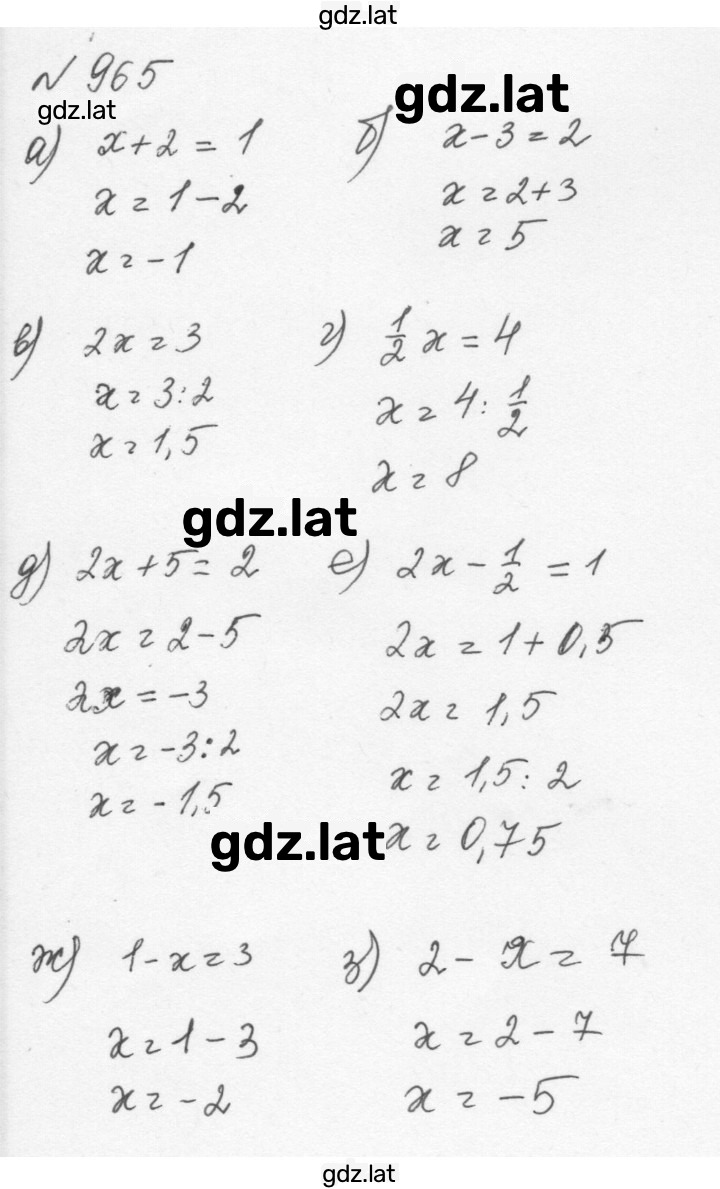 gdz.lat
№ 965
gdz.lat
gdz.lat
а) x + 2 = 1
x = 1 - 2
x = -1
б) x - 3 = 2
x = 2 + 3
x = 5
в) 2x = 3
x = 3 : 2
x = 1,5
г) 1/2 x = 4
x = 4 : 1/2
x = 8
gdz.lat
д) 2x + 5 = 2
2x = 2 - 5
2x = -3
x = -3 : 2
x = -1,5
е) 2x - 1/2 = 1
2x = 1 + 0,5
2x = 1,5
x = 1,5 : 2
x = 0,75
gdz.lat
ж) 1 - x = 3
x = 1 - 3
x = -2
з) 2 - x = 7
x = 2 - 7
x = -5
gdz.lat